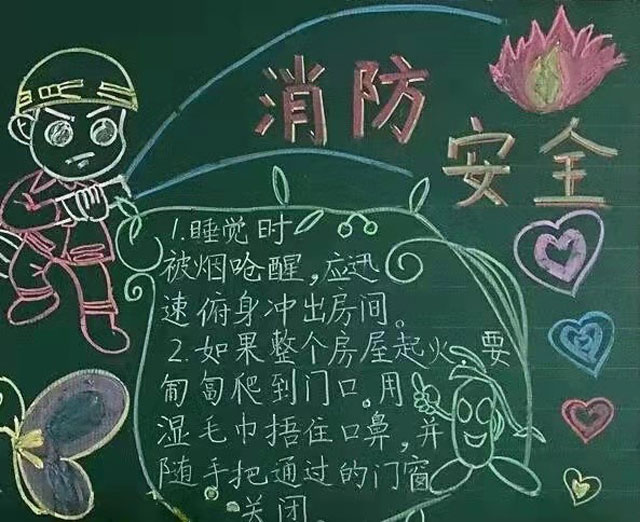 消防
安全
1.睡觉时
被烟呛醒,应迅
速俯身冲出房间。
2.如果整个房屋起火要
匍匐爬到门口。用
湿毛巾捂住口鼻,并
随手把通过的门窗
关闭。